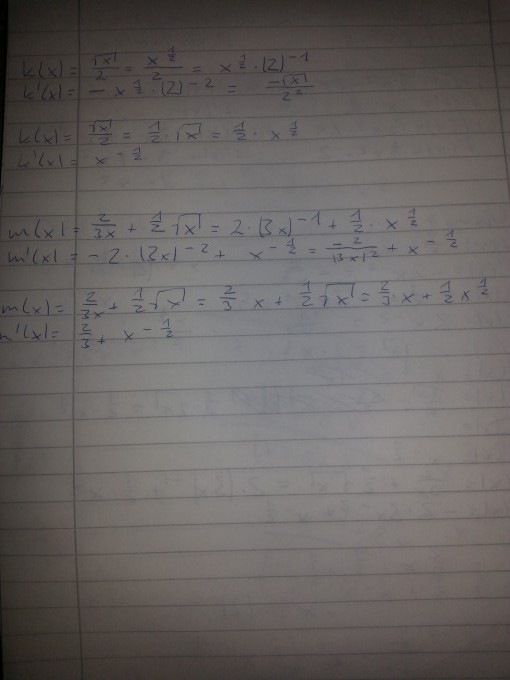 k(x) = √x/2 = x^½/2 = x^½ · (2)^-1
k'(x) = - x^½ · (2)^-2 = -√x/2²
k(x) = √x/2 = ½ · √x = ½ · x^½
k'(x) = x^-½
m(x) = 2/3x + ½ √x = 2 · (3x)^-1 + ½ · x^½
m'(x) = - 2 · (3x)^-2 + x^-½ = -2/(3x)² + x^-½
m(x) = 2/3x + ½ √x = 2/3 · x + ½ √x = 2/3 · x + ½ x^½
m'(x) = 2/3 + x^-½